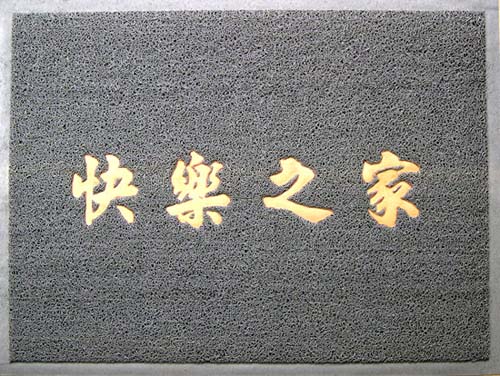 快樂之家